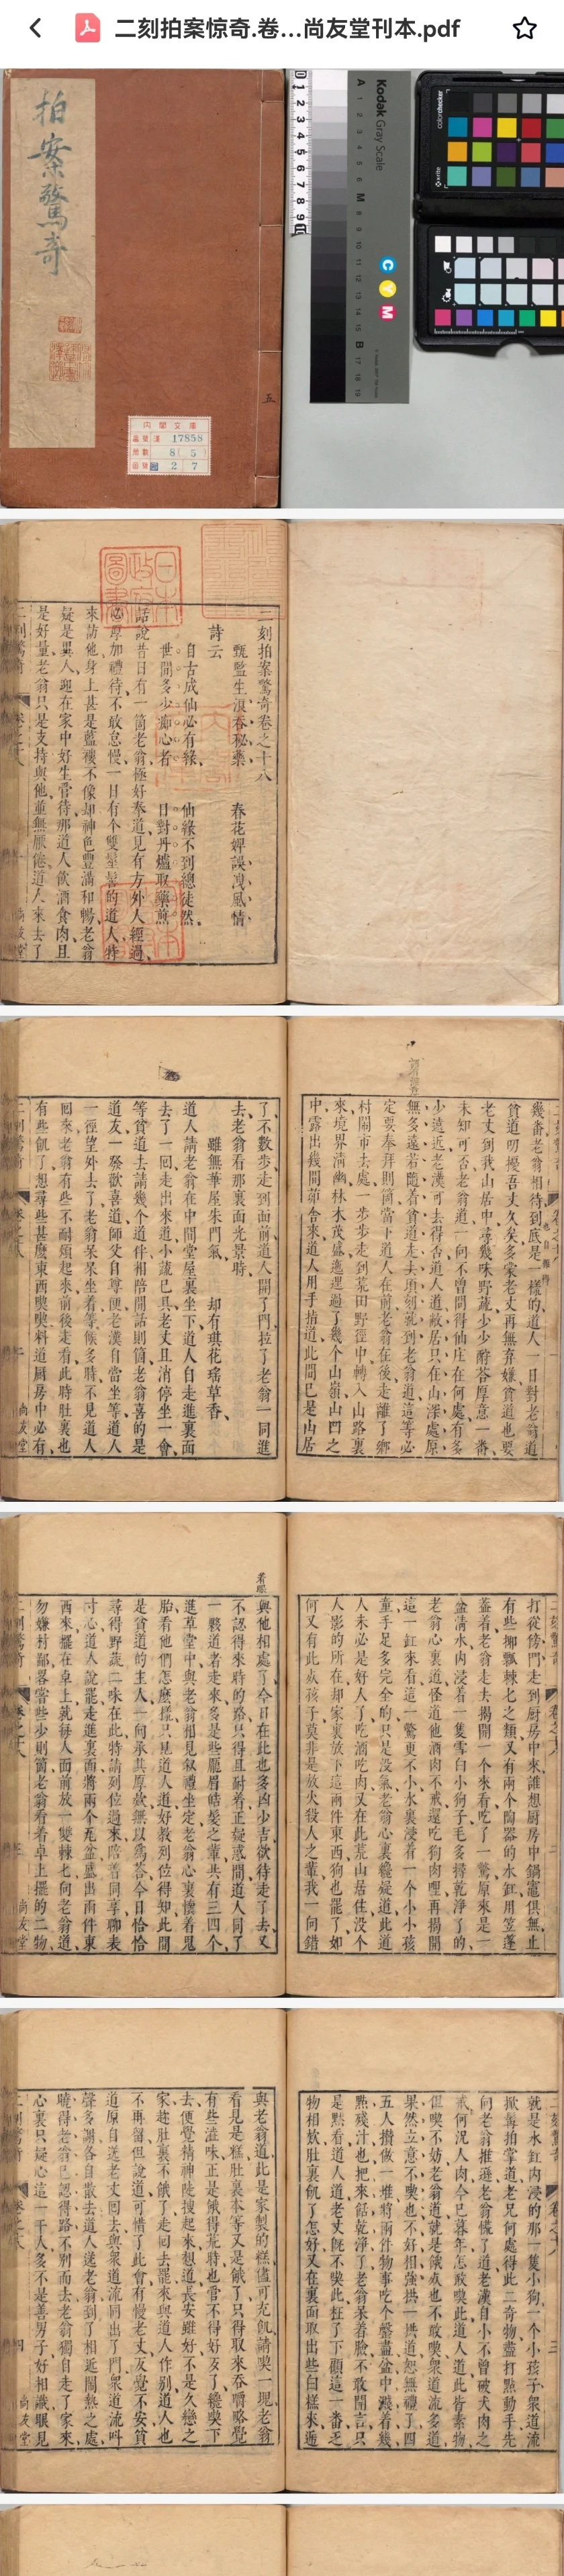 二刻拍案惊奇.卷...尚友堂刊本.pdf
拍案驚奇
五
內閣文庫
漢
17858
8(5)
2 7
Kodak Gray Scale
C
Y
M
A 1 2 3 4 5 6 M 8 9 10 11 12 13 14 15 B 17 18 19
colorchecker
x-rite
日本政府圖書
二刻拍案驚奇卷之十八
甄監生浪吞秘藥 春花婢誤洩風情
詩云
自古成仙必有緣 仙緣不到總徒然
世間多少癡心者 日對丹爐取藥煎
話說昔日有一箇老翁極好奉道見有方外人經過
必厚加禮待不敢怠慢一日有个雙髽髻的道人特
來訪他身上甚是藍褸不像却神色豐滿和暢老翁
疑是異人迎在家中好生管待那道人飲酒食肉且
是好量老翁只是支持與他並無厭倦道人來去了
幾番老翁相待到底是一樣的道人一日對老翁道
貧道叨擾吾丈久矣多蒙老丈再無弃嫌貧道也要
老丈到我山居中尋幾味野蔬少少酧答厚意一番
未知可否老翁道一向不曾問得仙庄在何處有多
少遠近老漢可去得否道人道敝居只在山深處原
無多遠若隨着貧道走去頃刻就到老翁道這等必
定要奉拜則箇當下道人在前老翁在後走離了鄉
村鬧市去處一步步走到荒田野徑中轉入山路裏
來境界清幽林木茂盛迤逦過了幾个山嶺山凹之
中露出幾間茆舍來道人用手指道此間已是山居
了不數步走到面前道人開了門拉了老翁一同進
去老翁看那裏面光景時
雖無華屋朱門氣 却有琪花瑶草香
道人請老翁在中間堂屋裏坐下道人自走進裏面
去了一回走出來道小蔬已具老丈且消停坐一會
等貧道去請幾个道伴相陪閒話則箇老翁喜的是
道友一發歡喜道師父自尊便老漢自當坐等道人
一徑望外去了老翁呆呆坐着等候多時不見道人
回來老翁有些不耐煩起來前後走看此時肚裏也
有些飢了想尋些甚麼東西喫喫料道厨房中必有
打從傍門走到厨房中來誰想厨房中鍋竈俱無止
有些椰瓢棘匕之類又有兩个陶器的水缸用笠篷
葢着老翁走去揭開一个來看吃了一驚原來是一
盆清水內浸着一隻雪白小狗子毛多撏乾淨了的
老翁心裏道怪道他酒肉不戒還吃狗肉哩再揭開
這一缸來看這一驚更不小水裏浸着一个小小孩
童手足多完全的只是没氣老翁心裏纔疑道此道
人未必是好人了吃酒吃肉又在此荒山居住没个
人影的所在却家裏放下這兩件東西狗也罷了如
何又有此死孩子莫非是放火殺人之輩我一向錯
看眼
與他相處了今日在此也多凶少吉欲待走了去又
不認得來時的路只得且耐着正疑惑間道人同了
一夥道者走來多是些龎眉皓髮之輩共有三四个
進草堂中與老翁相見敘禮坐定老翁心裏懷着鬼
胎看他們怎麼樣只見道人道好教列位得知此間
是貧道的主人一向承其厚款無以爲答今日恰恰
尋得野蔬二味在此特請列位過來陪着同享聊表
寸心道人說罷走進裏面將兩个瓦盆盛出兩件東
西來擺在卓上就每人面前放一雙棘匕向老翁道
勿嫌村鄙畧嘗些少則箇老翁看着卓上擺的二物
就是水缸內浸的那一隻小狗一个小孩子衆道流
掀髯拍掌道老兄何處得此二奇物盡打點動手先
向老翁推遜老翁慌了道老漢自小不曾破犬肉之
戒何况人肉今已暮年怎敢喫此道人道此皆素物
但喫不妨老翁道就是餓死也不敢喫衆道流多道
果然立意不喫也不好相強拱一拱道恕無禮了四
五人攢做一堆將兩件物事吃个罄盡盆中濺着幾
點殘汁也把來餂乾淨了老翁呆着臉不敢開言只
是默看道人道老丈旣不喫此枉了下顧這一番乏
物相款肚裏飢了怎好又在裏面取出些白糕來遞
與老翁道此是家製的糕儘可充飢請喫一塊老翁
看見是糕肚裏本等又是餓了只得取來吞嚼略覺
有些澁味正是餓得荒時也管不得好歹了纔喫下
去便覺精神陡搜起來想道長安雖好不是久戀之
家趂肚裏不餓了走回去罷來與道人作別道人也
不再留但說道可惜了此會有慢老丈反覺不安貧
道原自送老丈回去與衆道流同出了門衆道流叫
聲多謝各自散去道人送老翁到了相近鬧熱之處
曉得老翁已認得路不別而去老翁獨自走了家來
心裏只疑心這一干人多不是善男子好相識眼見